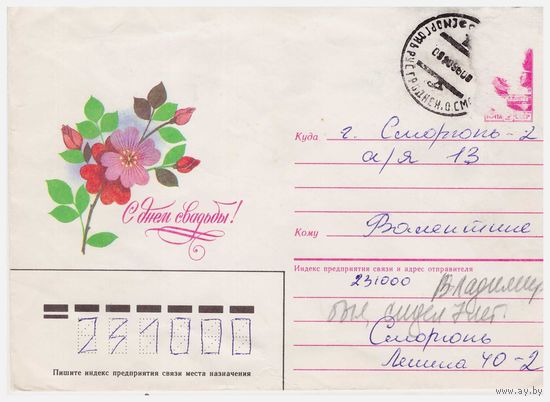 ПОЧТА СССР
Куда г. Сморгонь-2
а/я 13
С днем свадьбы!
Кому Валентине
Индекс предприятия связи и адрес отправителя
231000
Владимир
был
Сморгонь
Ленина 40-2
231000
Пишите индекс предприятия связи места назначения
www.ay.by